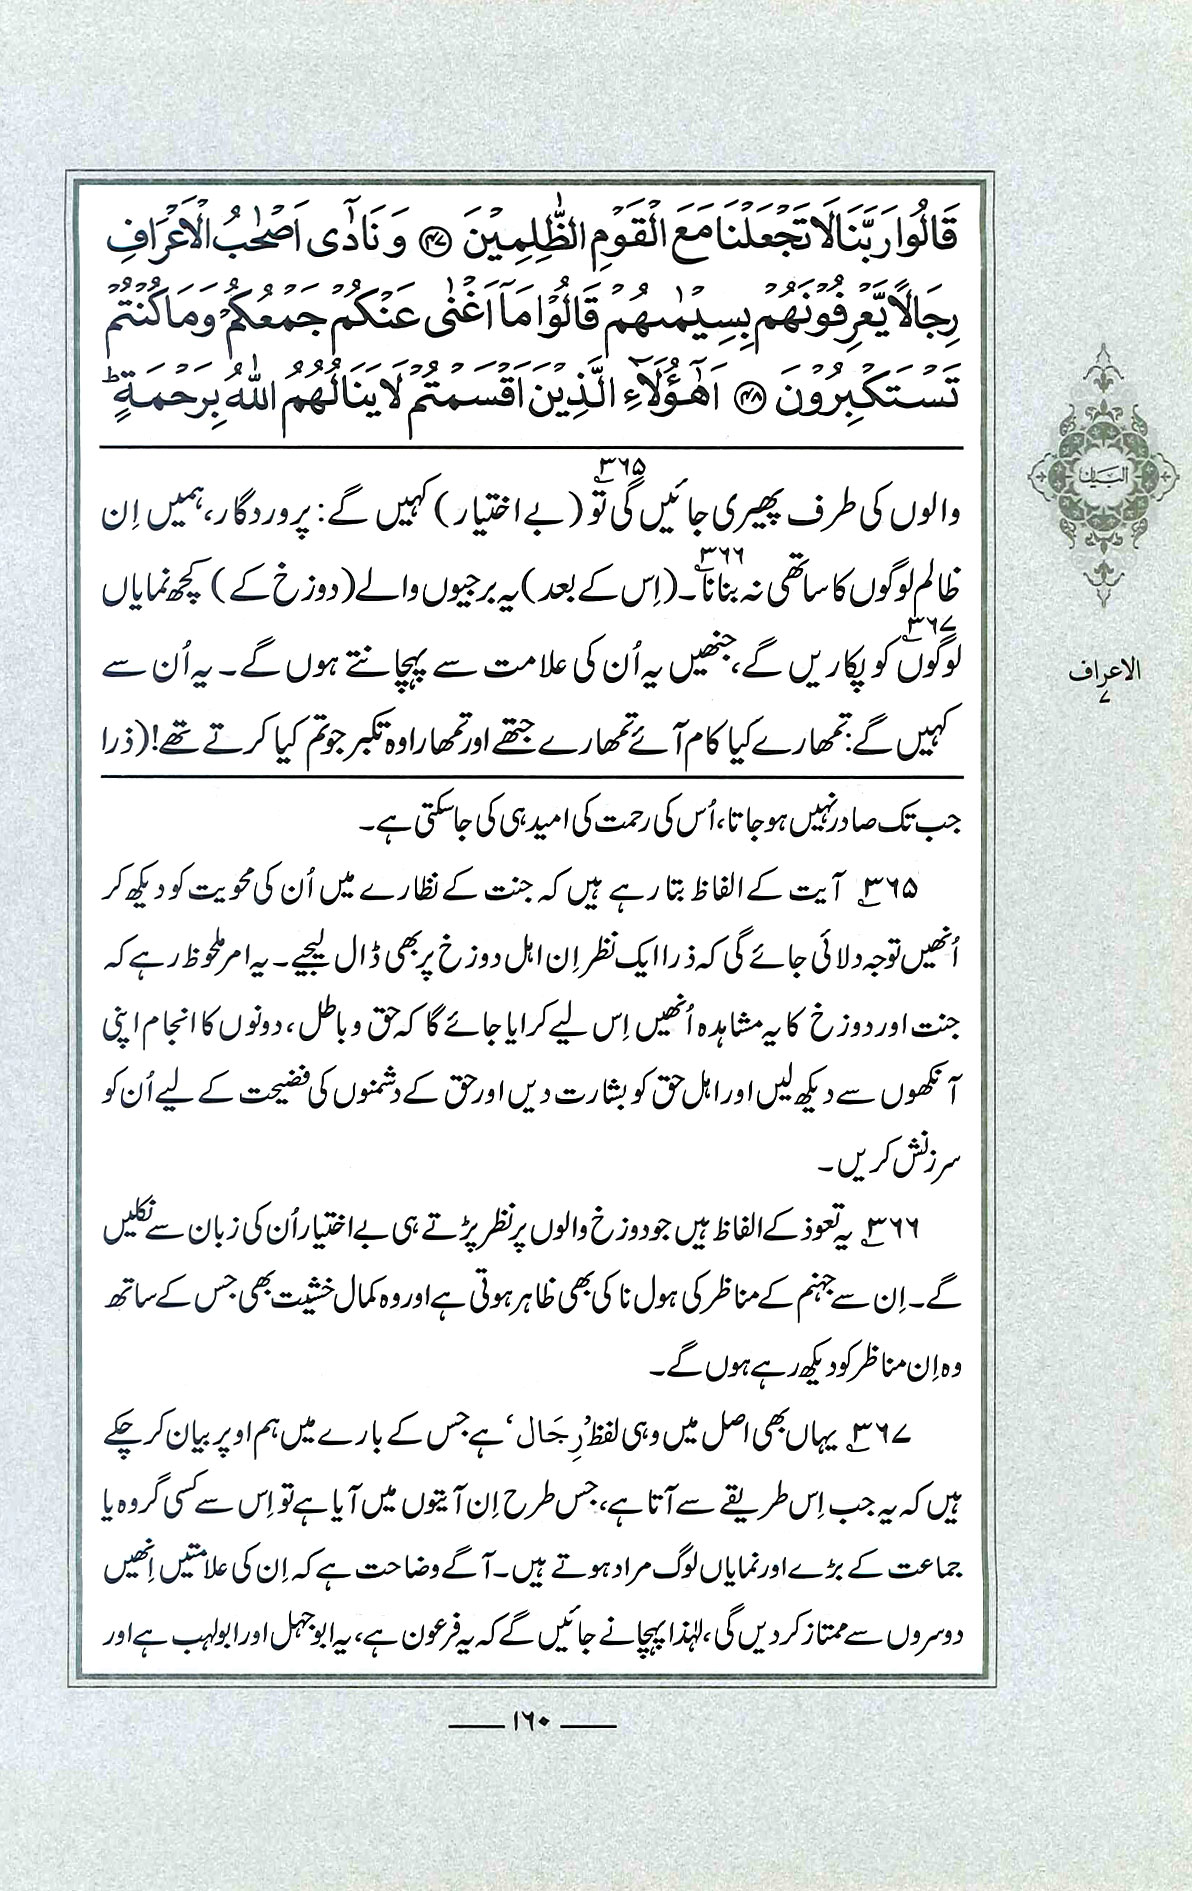 قَالُوْا رَبَّنَا لَا تَجْعَلْنَا مَعَ الْقَوْمِ الظّٰلِمِيْنَ ﴿۴۷﴾ وَ نَادٰۤى اَصْحٰبُ الْاَعْرَافِ
رِجَالًا يَّعْرِفُوْنَهُمْ بِسِيْمٰىهُمْ قَالُوْا مَاۤ اَغْنٰى عَنْكُمْ جَمْعُكُمْ وَمَا كُنْتُمْ
تَسْتَكْبِرُوْنَ ﴿۴۸﴾ اَهٰۤؤُلَآءِ الَّذِيْنَ اَقْسَمْتُمْ لَا يَنَالُهُمُ اللّٰهُ بِرَحْمَةٍ ؕ
والوں کی طرف پھیری جائیں گی تو۳۶۵ (بے اختیار) کہیں گے: پروردگار، ہمیں اِن
ظالم لوگوں کا ساتھی نہ بنانا۳۶۶۔ (اِس کے بعد) یہ برجیوں والے (دوزخ کے) کچھ نمایاں
لوگوں۳۶۷ کو پکاریں گے، جنھیں یہ اُن کی علامت سے پہچانتے ہوں گے۔ یہ اُن سے
کہیں گے: تمھارے کیا کام آئے تمھارے جتھے اور تمھارا وہ تکبر جو تم کیا کرتے تھے! (ذرا
جب تک صادر نہیں ہو جاتا، اُس کی رحمت کی امید ہی کی جا سکتی ہے۔
۳۶۵؎ آیت کے الفاظ بتا رہے ہیں کہ جنت کے نظارے میں اُن کی محویت کو دیکھ کر
اُنھیں توجہ دلائی جائے گی کہ ذرا ایک نظر اِن اہل دوزخ پر بھی ڈال لیجیے۔ یہ امر ملحوظ رہے کہ
جنت اور دوزخ کا یہ مشاہدہ اُنھیں اِس لیے کرایا جائے گا کہ حق و باطل، دونوں کا انجام اپنی
آنکھوں سے دیکھ لیں اور اہل حق کو بشارت دیں اور حق کے دشمنوں کی فضیحت کے لیے اُن کو
سرزنش کریں۔
۳۶۶؎ یہ تعوذ کے الفاظ ہیں جو دوزخ والوں پر نظر پڑتے ہی بے اختیار اُن کی زبان سے نکلیں
گے۔ اِن سے جہنم کے مناظر کی ہول ناکی بھی ظاہر ہوتی ہے اور وہ کمال خشیت بھی جس کے ساتھ
وہ اِن مناظر کو دیکھ رہے ہوں گے۔
۳۶۷؎ یہاں بھی اصل میں وہی لفظ ’رِجَال‘ ہے جس کے بارے میں ہم اوپر بیان کر چکے
ہیں کہ یہ جب اِس طریقے سے آتا ہے، جس طرح اِن آیتوں میں آیا ہے تو اِس سے کسی گروہ یا
جماعت کے بڑے اور نمایاں لوگ مراد ہوتے ہیں۔ آگے وضاحت ہے کہ اِن کی علامتیں اِنھیں
دوسروں سے ممتاز کر دیں گی، لہٰذا پہچانے جائیں گے کہ یہ فرعون ہے، یہ ابوجہل اور ابولہب ہے اور
البیان
الاعراف
۷
۱۶۰